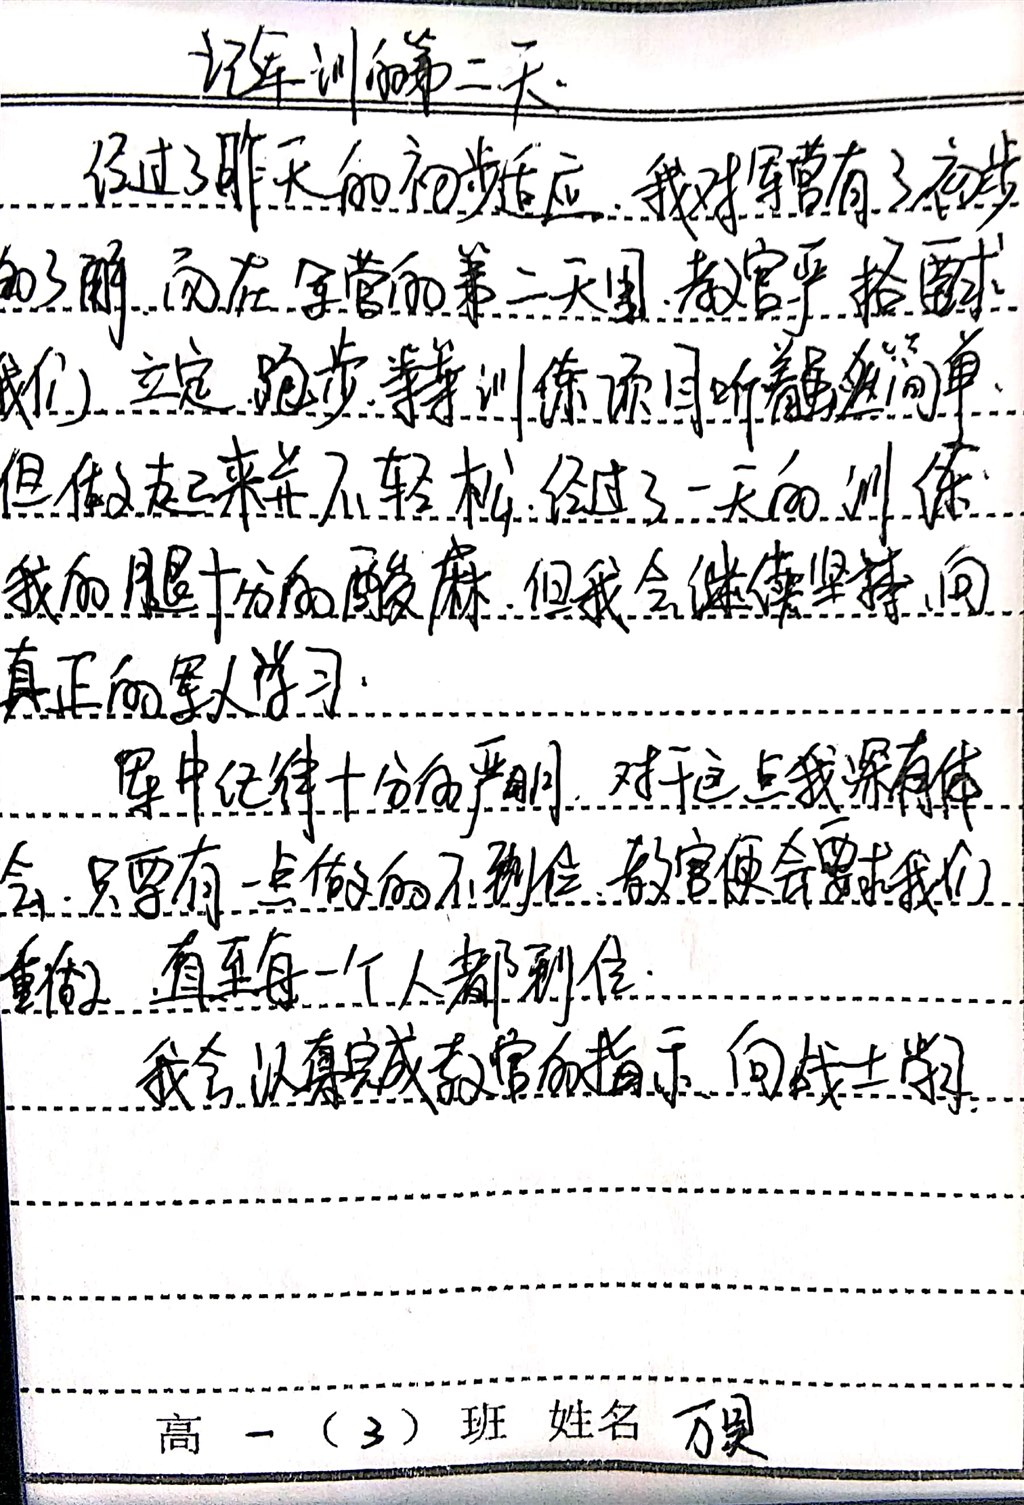 记军训的第二天.
经过了昨天的初步适应.我对军营有了初步
的了解.而在军营的第二天里.教官严格要求
我们立定.跑步.等等训练项目听着虽然简单.
但做起来并不轻松.经过了一天的训练.
我的腿十分的酸麻.但我会继续坚持.向
真正的军人学习.
军中纪律十分的严明.对于这点我深有体
会.只要有一点做的不到位.教官便会要求我们
重做.直至每一个人都到位.
我会认真完成教官的指示.向战士学习.
高一（3）班 姓名 万贝